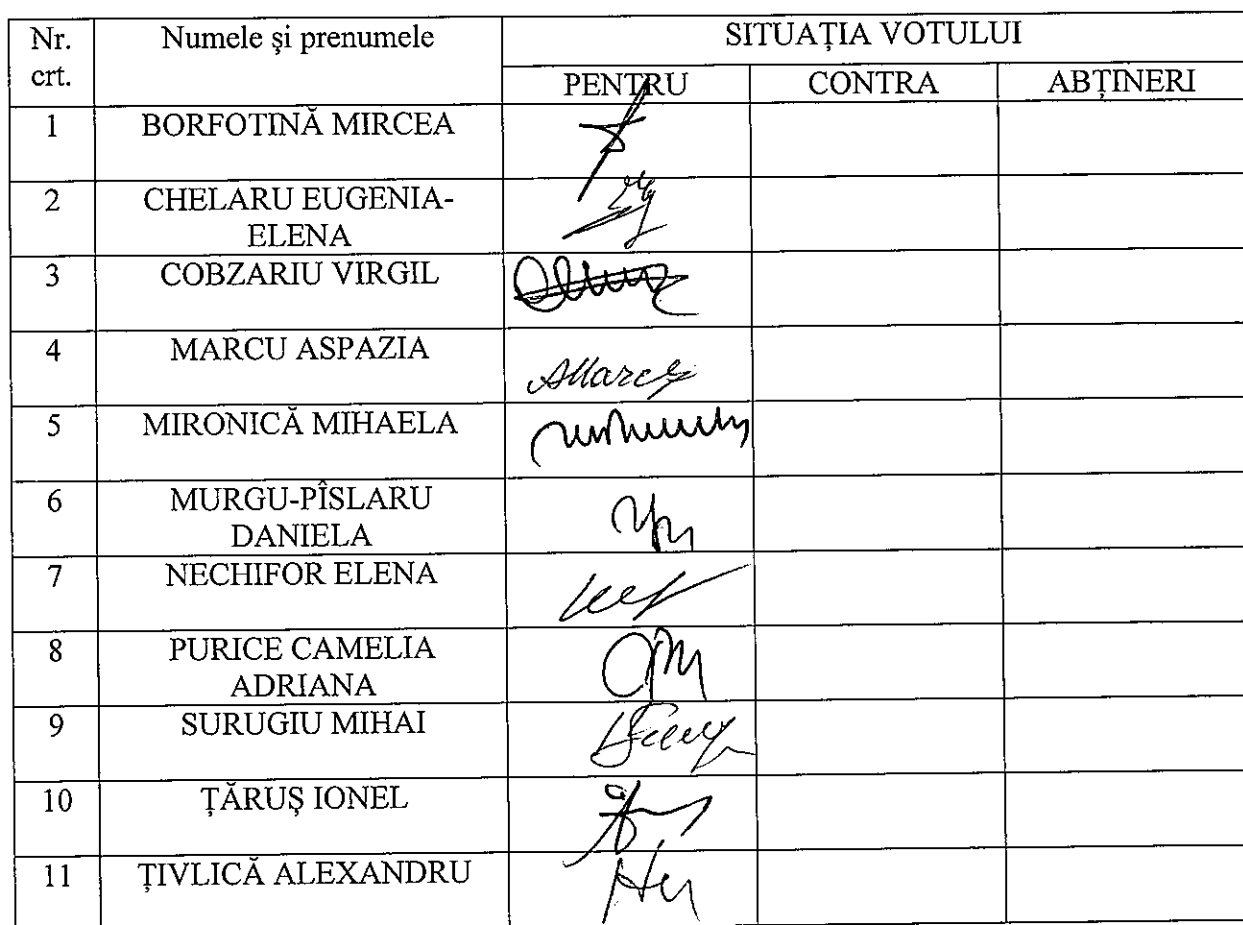 Nr. crt. Numele şi prenumele SITUAŢIA VOTULUI
PENTRU CONTRA ABŢINERI
1 BORFOTINĂ MIRCEA
2 CHELARU EUGENIA-
ELENA
3 COBZARIU VIRGIL
4 MARCU ASPAZIA
AMarcu
5 MIRONICĂ MIHAELA
6 MURGU-PÎSLARU
DANIELA
7 NECHIFOR ELENA
8 PURICE CAMELIA
ADRIANA
9 SURUGIU MIHAI
10 ŢĂRUŞ IONEL
11 ŢIVLICĂ ALEXANDRU